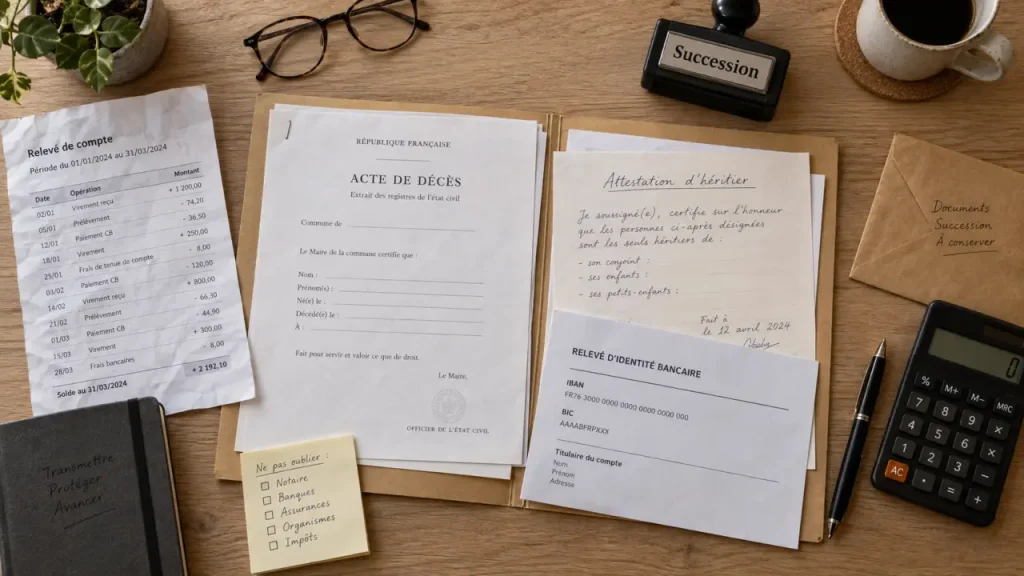 Relevé de compte
Période du 01/01/2024 au 31/03/2024
Date Opération Montant
02/01 Virement reçu + 1 200,00
05/01 Prélèvement - 74,20
12/01 Paiement CB - 36,50
18/01 Virement + 250,00
25/01 Frais de tenue de compte - 8,00
03/02 Paiement CB - 120,00
14/02 Virement reçu + 800,00
21/02 Prélèvement - 66,30
01/03 Paiement CB - 44,90
15/03 Virement + 300,00
28/03 Frais bancaires - 8,00
Solde au 31/03/2024 + 2 192,10
RÉPUBLIQUE FRANÇAISE
ACTE DE DÉCÈS
Extrait des registres de l'état civil
Commune de
Le Maire de la commune certifie que :
Nom :
Prénom(s) :
Né(e) le :
Décédé(e) le :
À :
Fait pour servir et valoir ce que de droit.
Le Maire,
OFFICIER DE L'ÉTAT CIVIL
Succession
Attestation d'héritier
Je soussigné(e), certifie sur l'honneur
que les personnes ci-après désignées
sont les seuls héritiers de :
- son conjoint :
- ses enfants :
- ses petits-enfants :
Fait à
le 12 avril 2024
RELEVÉ D'IDENTITÉ BANCAIRE
IBAN
FR76 3000 0000 0000 0000 0000 000
BIC
AAAABFRPXXX
Titulaire du compte
Nom
Prénom
Adresse
Documents
Succession
À conserver
Transmettre
Protéger
Avancer
Ne pas oublier :
Notaire
Banques
Assurances
Organismes
Impôts
0
% M+ M- MRC
7 8 9 ×
4 5 6 ×
1 2 3 -
AC 0 . +